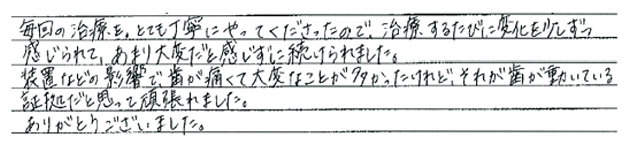 毎回の治療を、とても丁寧にやってくださったので、治療するたびに変化を少しずつ
感じられて、あまり大変だと感じずに続けられました。
装置などの影響で歯が痛くて大変なことが多かったけれど、それが歯が動いている
証拠だと思って頑張れました。
ありがとうございました。